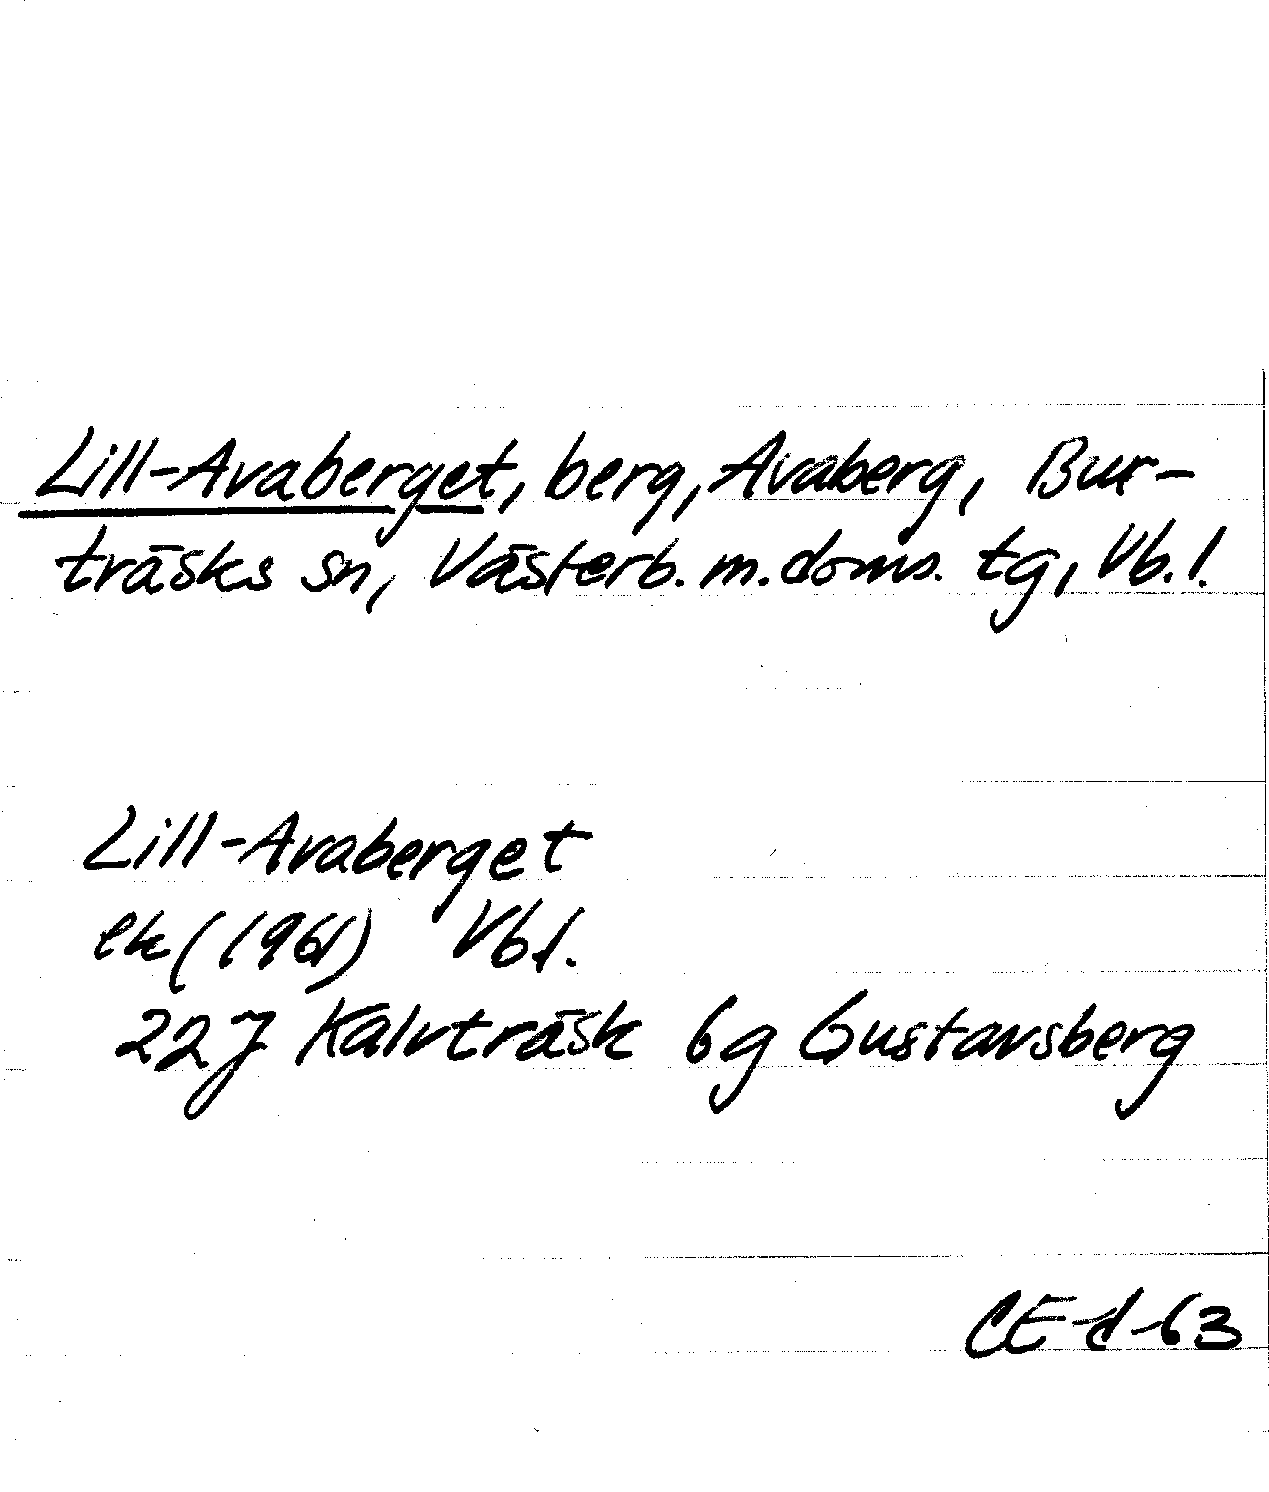 Lill-Avaberget, berg, Avaberg, Bur-
träsks sn, Västerb. m. doms. tg, Vb. l.
Lill-Avaberget
ek (1961) Vb l.
22J Kalvträsk 6g Gustavsberg
CE-d-63